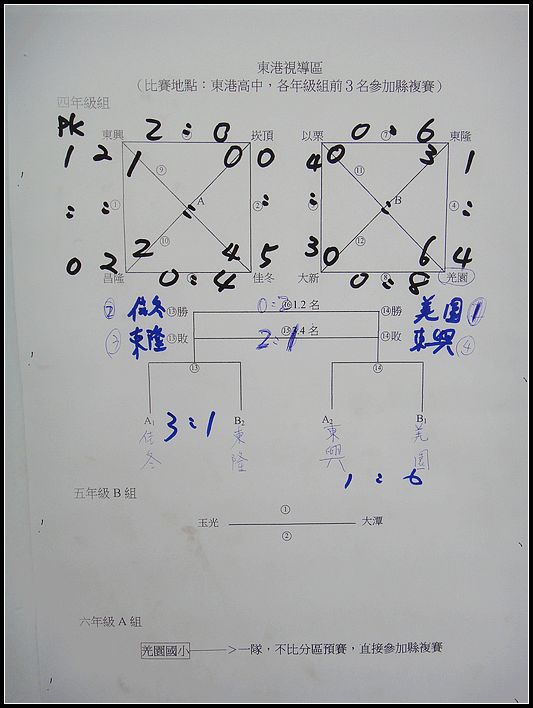 東港視導區
(比賽地點：東港高中，各年級組前3名參加縣複賽)
四年級組
PK
東興 2 : 0 崁頂
以栗 0 : 6 東隆
⑦
1 2 1 0 0
4 0 3 1
⑨
⑪
: : ① : A ② :
: : B ④ :
⑩
⑫
0 2 2 4 5
3 0 6 4
昌隆 0 : 4 佳冬
大新 0 : 8 光園
⑧
② 佳冬 ⑬勝 0:2 ⑯1.2名 ⑭勝 美園 ①
③ 東隆 ⑬敗 2:1 ⑮3.4名 ⑭敗 東興 ④
⑬ ⑭
A1 3:1 B2 A2 B1
佳冬 東隆 東興 美園
1 : 6
五年級B組
①
玉光 大潭
②
六年級A組
光園國小 >一隊，不比分區預賽，直接參加縣複賽